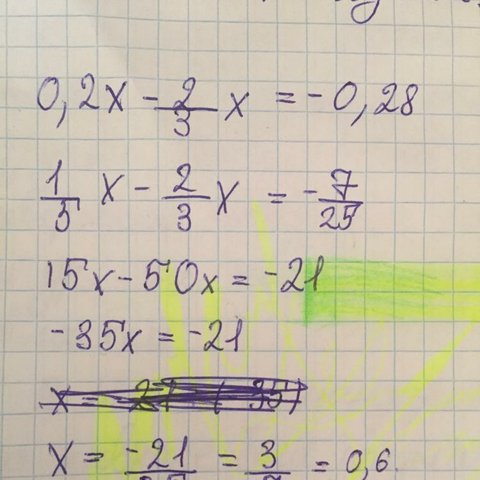 0,2x - 2/3 x = - 0,28
1/5 x - 2/3 x = - 7/25
15x - 50x = -21
-35x = -21
x = -21/35 = 3/5 = 0,6